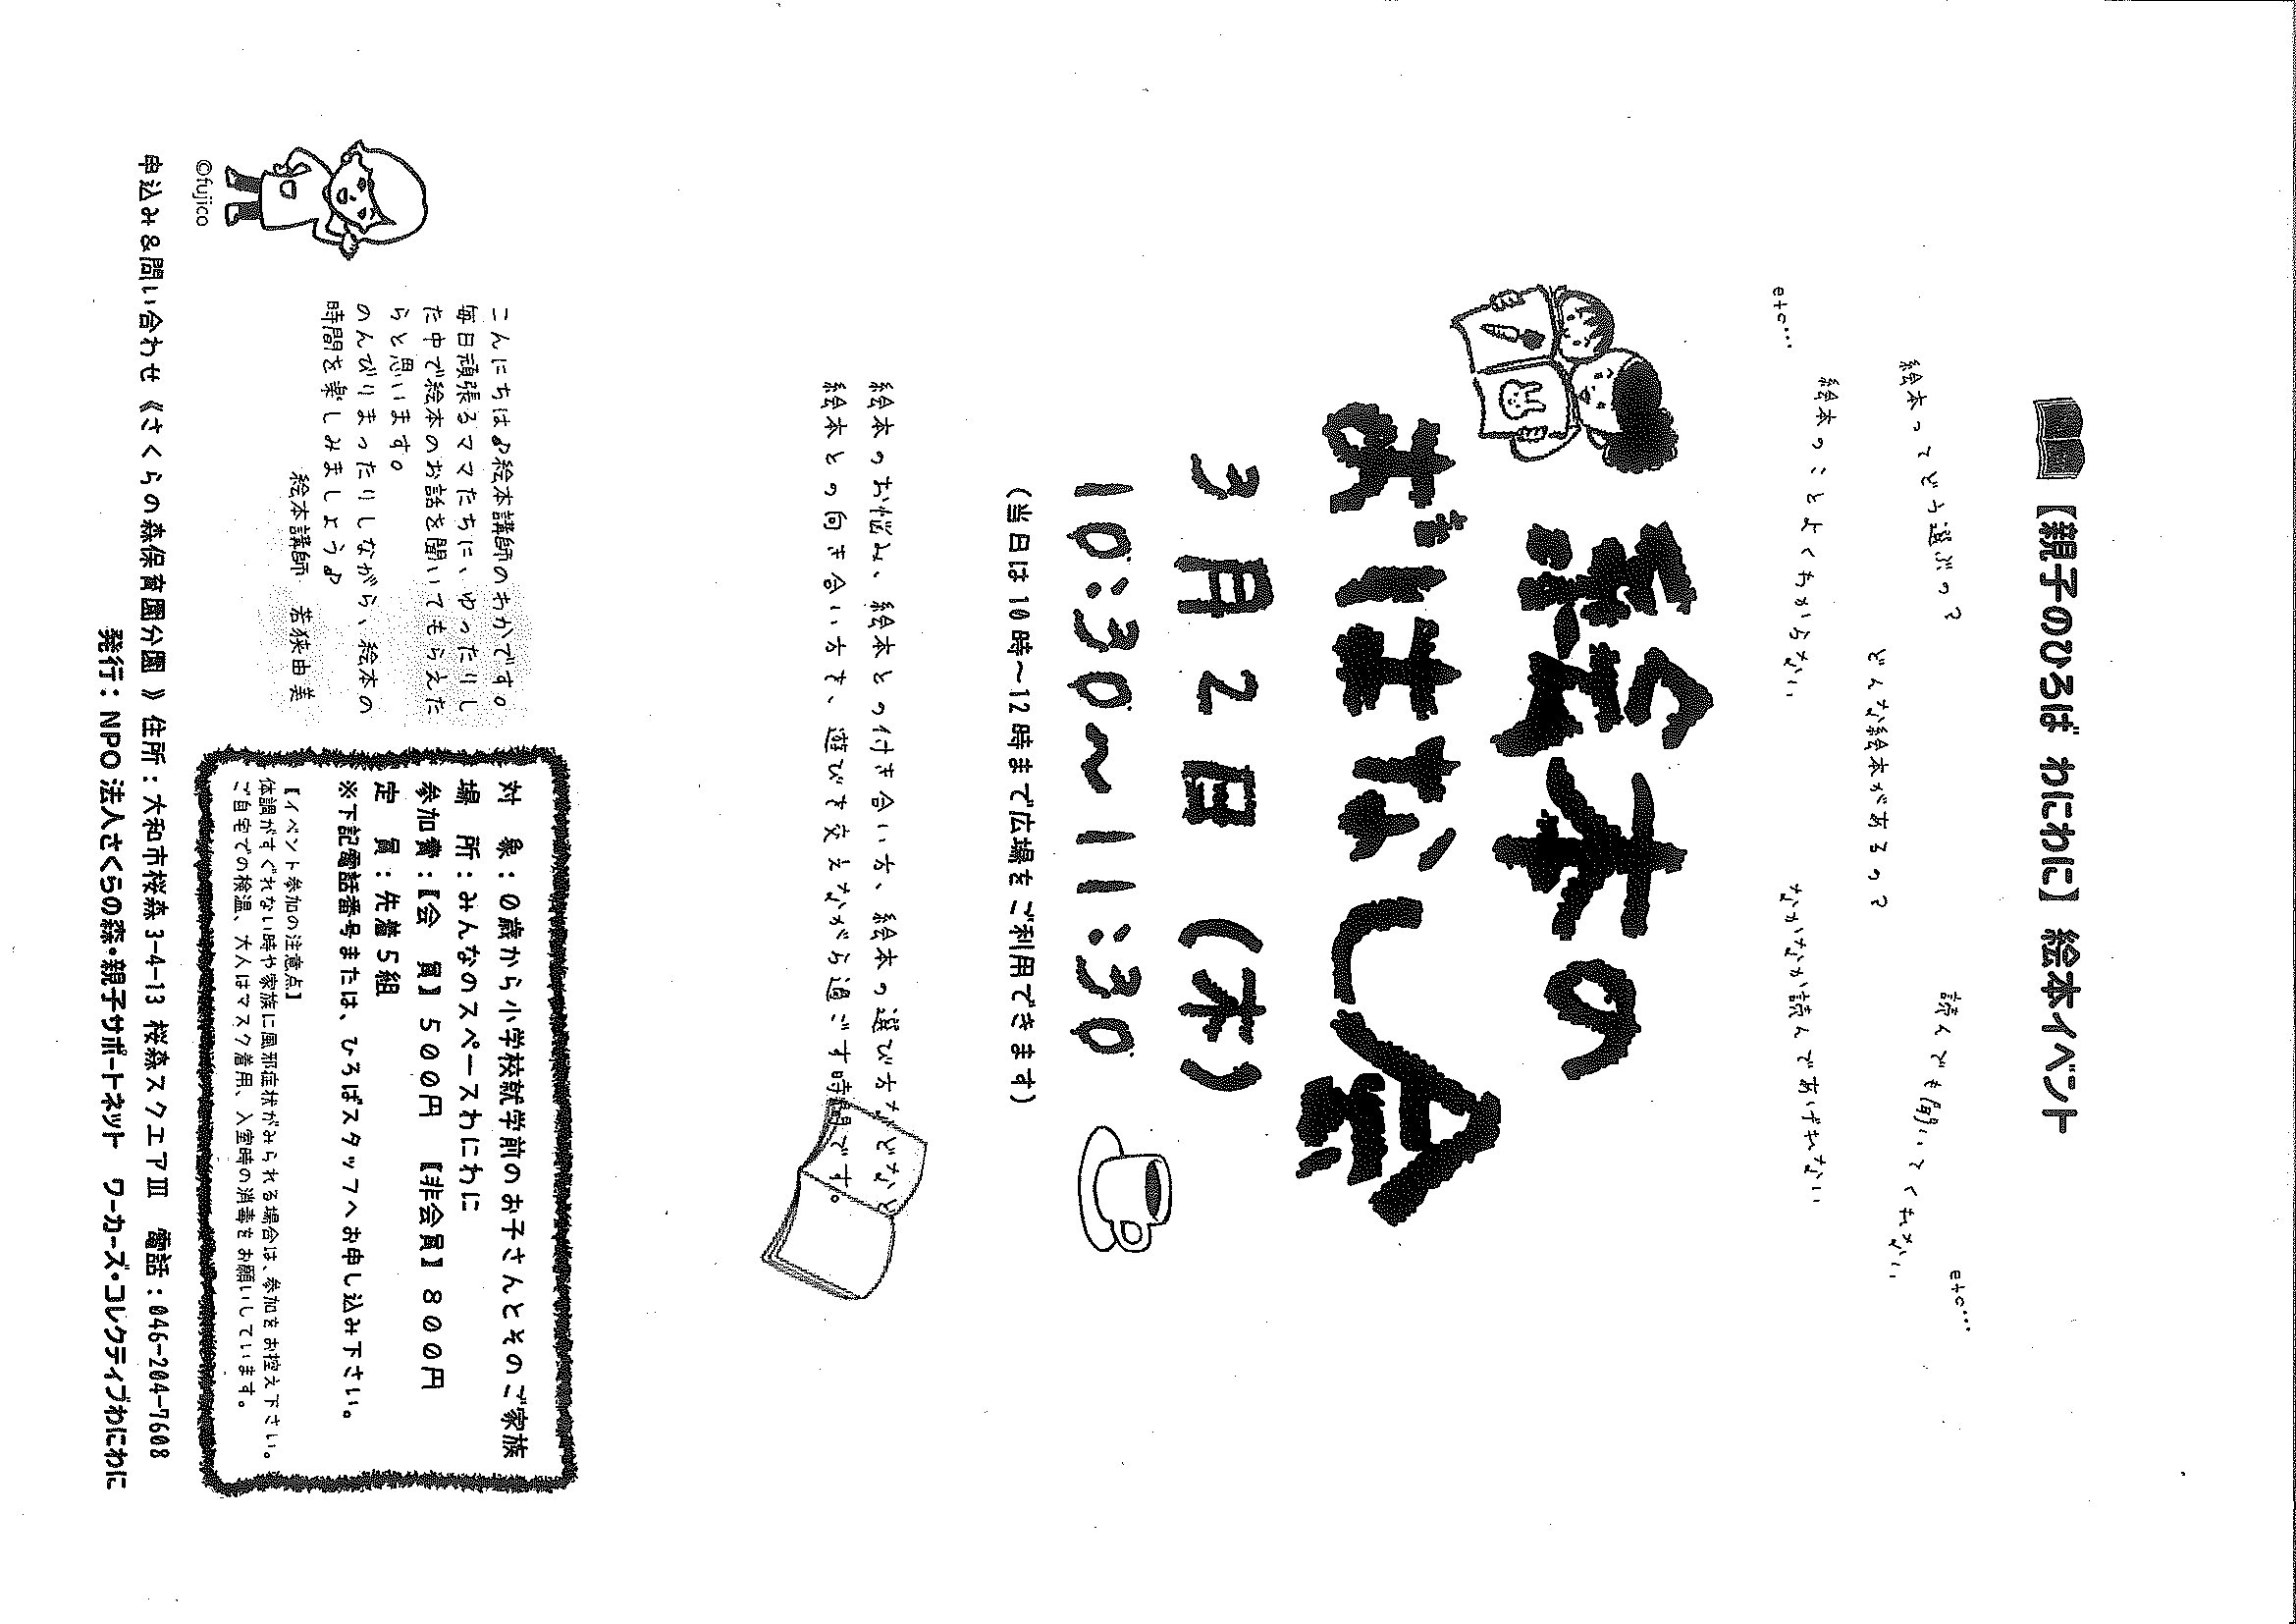 【親子のひろば わにわに】 絵本イベント
読んでも聞いてくれない
etc…
絵本ってどう選ぶの？
どんな絵本があるの？
絵本のことよくわからない
なかなか読んであげれない
etc…
絵本の
おはなし会
3月2日（木）
10:30～11:30
（当日は10時～12時まで広場をご利用できます）
絵本のお悩み、絵本との付き合い方、絵本の選び方などなど
絵本との向き合い方を、遊びを交えながら過ごす時間です。
こんにちは♪絵本講師のわかです。
毎日頑張るママたちに、ゆったりし
た中で絵本のお話を聞いてもらえた
らと思います。
のんびりまったりしながら、絵本の
時間を楽しみましょう♪
絵本講師　若狭由美
©fujico
対　象：０歳から小学校就学前のお子さんとそのご家族
場　所：みんなのスペースわにわに
参加費：【会　員】５００円　【非会員】８００円
定　員：先着５組
※下記電話番号または、ひろばスタッフへお申し込み下さい。
【イベント参加の注意点】
体調がすぐれない時や家族に風邪症状がみられる場合は、参加をお控え下さい。
ご自宅での検温、大人はマスク着用、入室時の消毒をお願いしています。
申込み＆問い合わせ《さくらの森保育園分園 》住所：大和市桜森 3-4-13 桜森スクエアⅢ　電話：046-204-7608
発行：NPO 法人さくらの森・親子サポートネット　ワーカーズ・コレクティブわにわに